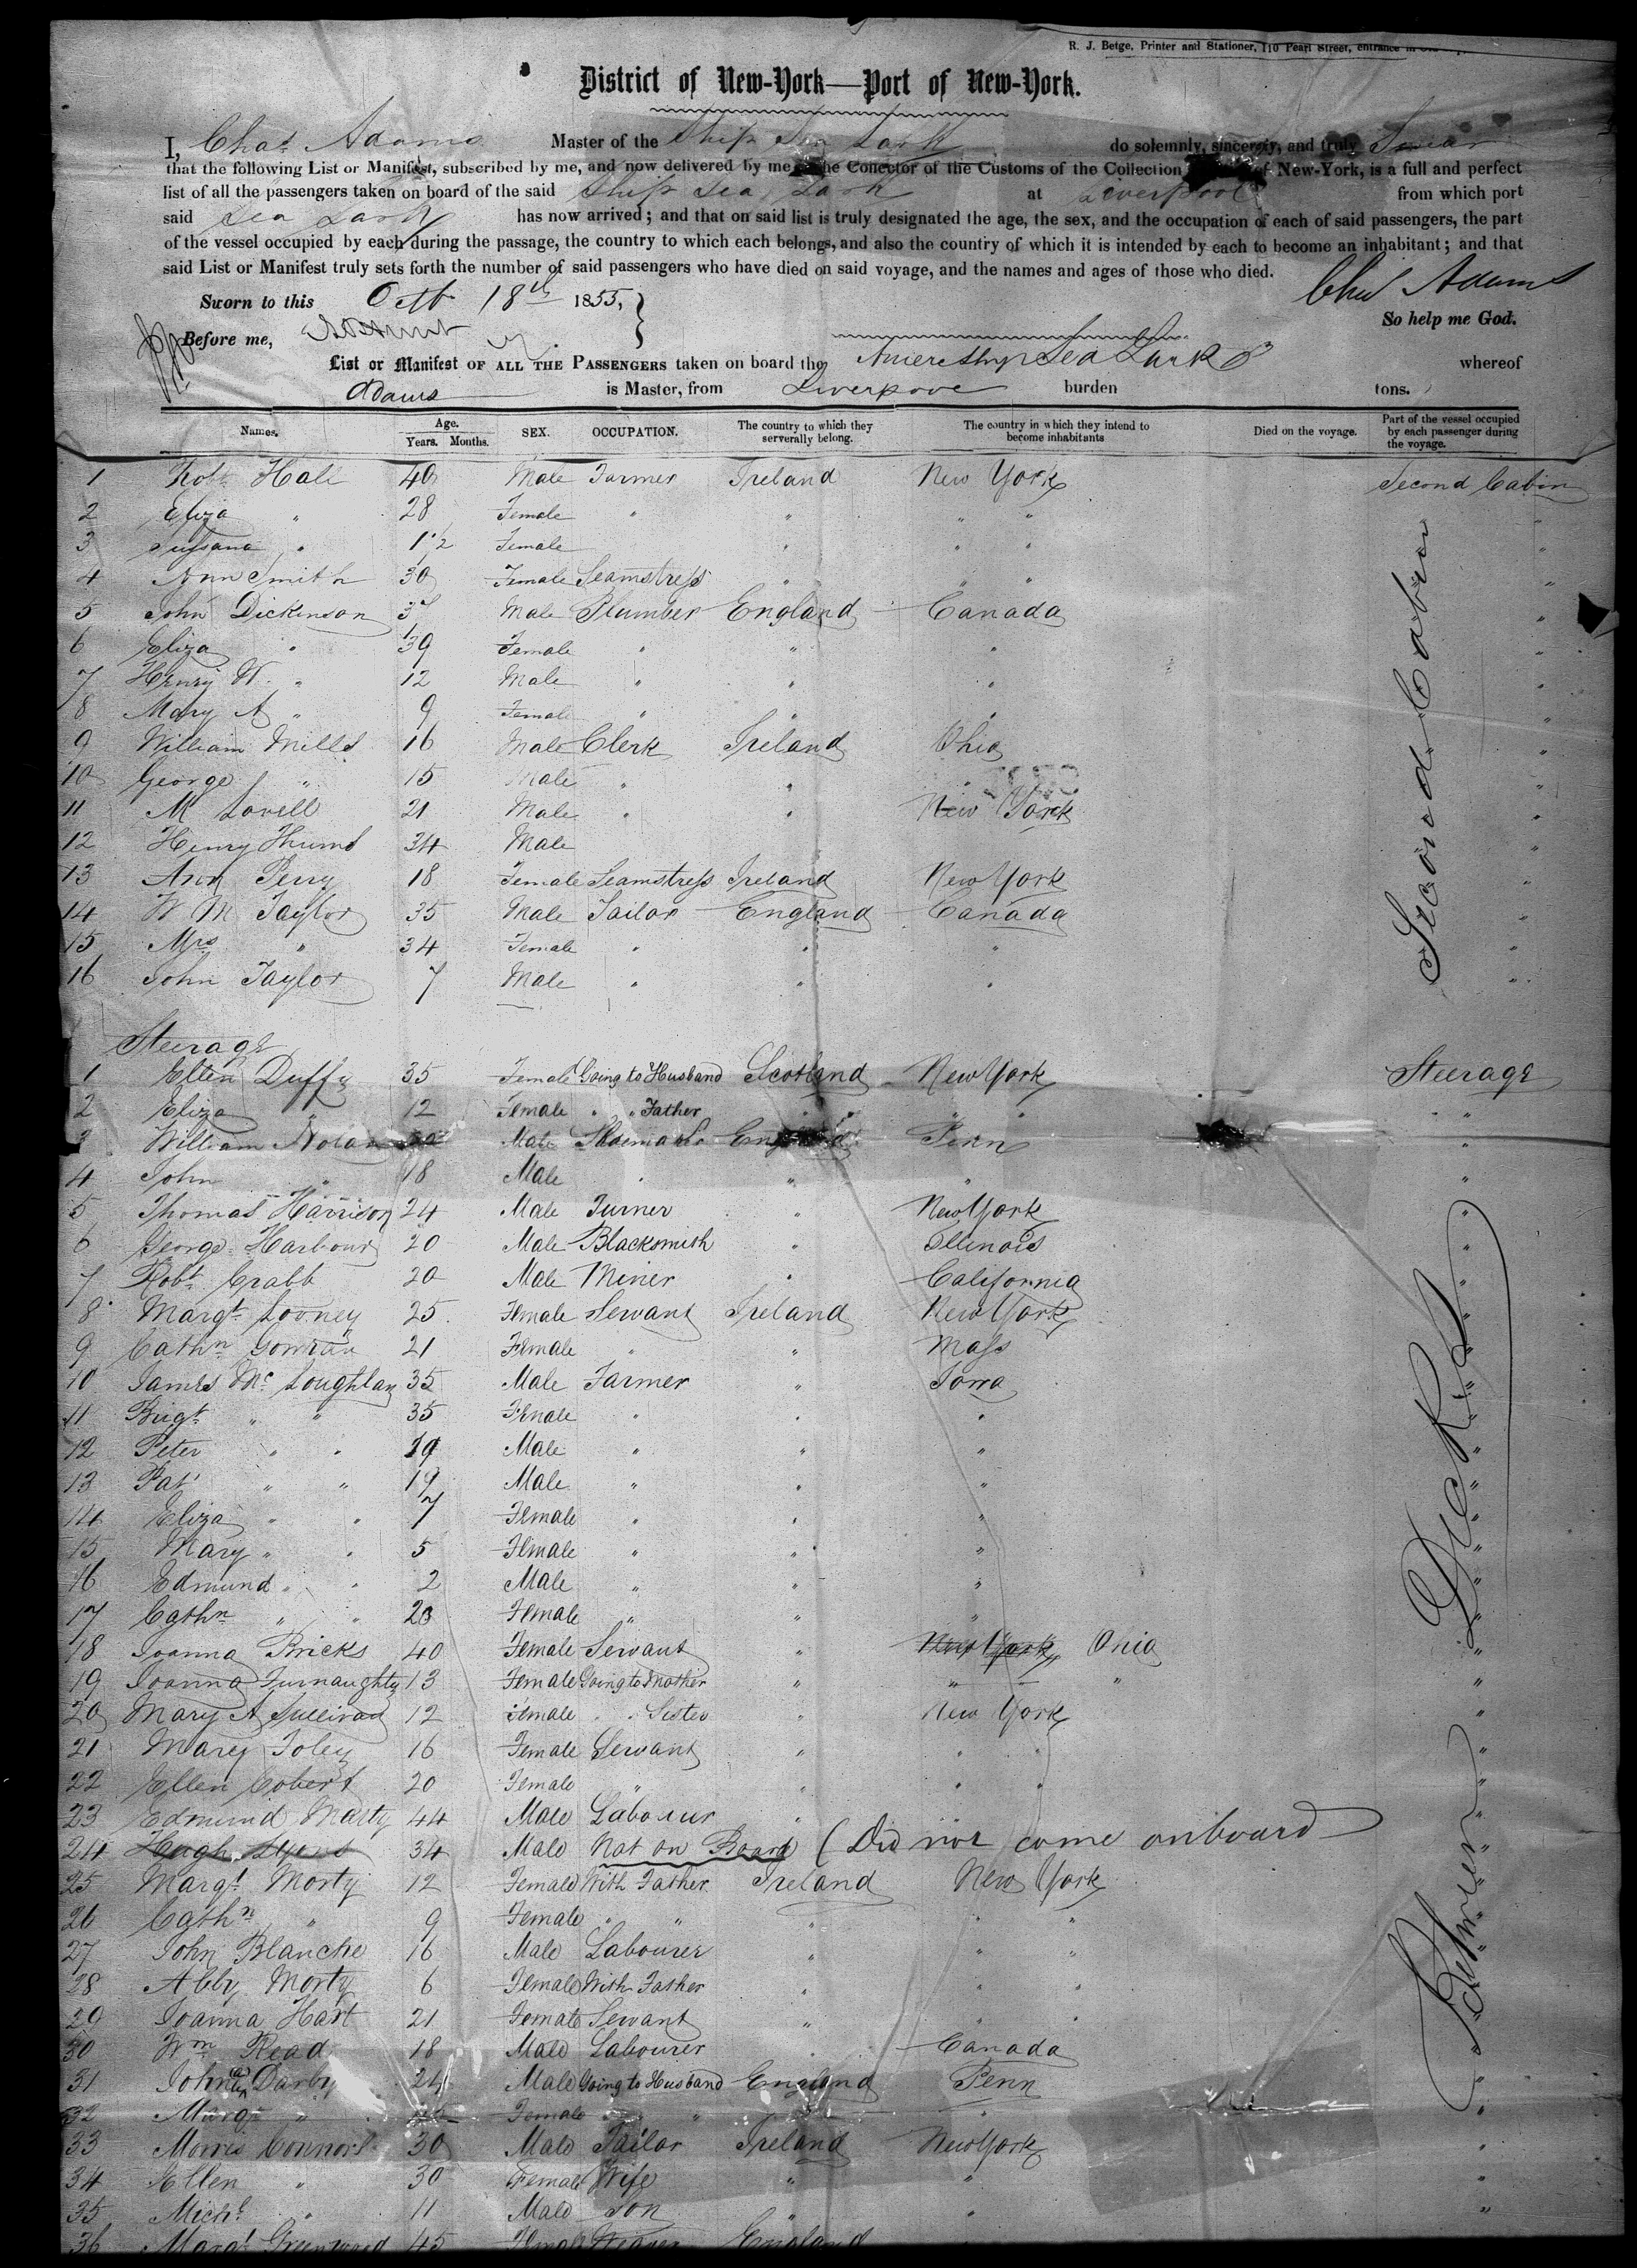 R. J. Betge, Printer and Stationer, 110 Pearl Street, entrance in
District of New-York—Port of New-York.
I, Chas. Adams Master of the Ship Sea Lark do solemnly, sincerely, and truly Swear
that the following List or Manifest, subscribed by me, and now delivered by me the Collector of the Customs of the Collection of New-York, is a full and perfect
list of all the passengers taken on board of the said Ship Sea Lark at Liverpool from which port
said Sea Lark has now arrived; and that on said list is truly designated the age, the sex, and the occupation of each of said passengers, the part
of the vessel occupied by each during the passage, the country to which each belongs, and also the country of which it is intended by each to become an inhabitant; and that
said List or Manifest truly sets forth the number of said passengers who have died on said voyage, and the names and ages of those who died.
Sworn to this Octb 18th 1855, Chas Adams
So help me God.
Before me,
List or Manifest OF ALL THE PASSENGERS taken on board the Sea Lark whereof
Adams is Master, from Liverpool burden tons.
Names. Age. Years. Months. SEX. OCCUPATION. The country to which they serverally belong. The country in which they intend to become inhabitants Died on the voyage. Part of the vessel occupied by each passenger during the voyage.
1 Robt Hall 40 Male Farmer Ireland New York Second Cabin
2 Eliza " 28 Female " " " " "
3 Sussana " 1 1/2 Female " " " "
4 Ann Smith 30 Female Seamstress " " " "
5 John Dickinson 37 Male Plumber England Canada "
6 Eliza " 39 Female " " " "
7 Henry W. " 12 Male " " " "
8 Mary A " 9 Female " " " "
9 William Mills 16 Male Clerk Ireland Ohio "
10 George " 15 Male " " " "
11 M Lovell 21 Male " " New York "
12 Henry 34 Male "
13 Ann Perry 18 Female Seamstress Ireland New York "
14 W M Taylor 35 Male Tailor England Canada "
15 Mrs " 34 Female " " " "
16 John Taylor 7 Male " " " "
Second Cabin
Steerage
1 Ellen Duffy 35 Female Going to Husband Scotland New York Steerage
2 Eliza " 12 Female " " Father " " " "
3 William Nolan Male Shoemaker England Penn "
4 John " 18 Male " " " "
5 Thomas Harrison 24 Male Turner " New York "
6 George Harbour 20 Male Blacksmith " Illinois "
7 Robt Crabb 20 Male Miner " California "
8 Margt Looney 25 Female Servant Ireland New York "
9 Cathn 21 Female " " Mass "
10 James McLoughlan 35 Male Farmer " Iowa "
11 Brigt " " 35 Female " " " "
12 Peter " " 19 Male " " " "
13 Pat " " 19 Male " " " "
14 Eliza " " 7 Female " " " "
15 Mary " " 5 Female " " " "
16 Edmund " " 2 Male " " " "
17 Cathn " " 20 Female " " " "
18 Joanna Bricks 40 Female Servant " New York Ohio "
19 Joanna Furnaughty 13 Female Going to Mother " " " "
20 Mary A Sullivan 12 Female " " Sister " New York "
21 Mary Foley 16 Female Servant " " " "
22 Ellen Cobert 20 Female " " " " "
23 Edmund Marty 44 Male Labourer " "
24 Hugh 34 Male Not on Board (Did not come onboard "
25 Margt Morty 12 Female With Father Ireland New York "
26 Cathn " 9 Female " " " " " "
27 John Blanche 16 Male Labourer " " " "
28 Abby Morty 6 Female With Father " " " "
29 Joanna Hart 21 Female Servant " " " "
30 Wm Read 18 Male Labourer " Canada "
31 John Darby 24 Male Going to Husband England Penn "
32 Margt " Female " " " " "
33 Morris Connors 30 Male Tailor Ireland New York "
34 Ellen " 30 Female Wife " " "
35 Michl " 11 Male Son " " "
36 Margt Greenwood 45 Female Weaver England "
Between Decks